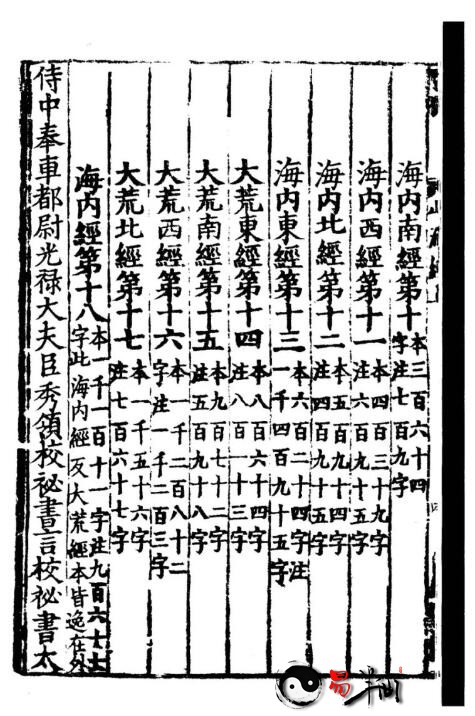 海内南經第十 本三百六十四字注七百九字
海内西經第十一 本四百三十九字注六百九十五字
海内北經第十二 本五百九十四字注四百九十五字
海内東經第十三 本六百二十四字注一千四百九十五字
大荒東經第十四 本八百六十四字注八百一十三字
大荒南經第十五 本九百七十二字注五百九十八字
大荒西經第十六 本一千二百八十二字注一千二百三字
大荒北經第十七 本一千五十六字注七百六十七字
海内經第十八 本一千一百十一字注九百六十七字此海内經及大荒經本皆逸在外
侍中奉車都尉光祿大夫臣秀領校祕書言校祕書太
易半仙